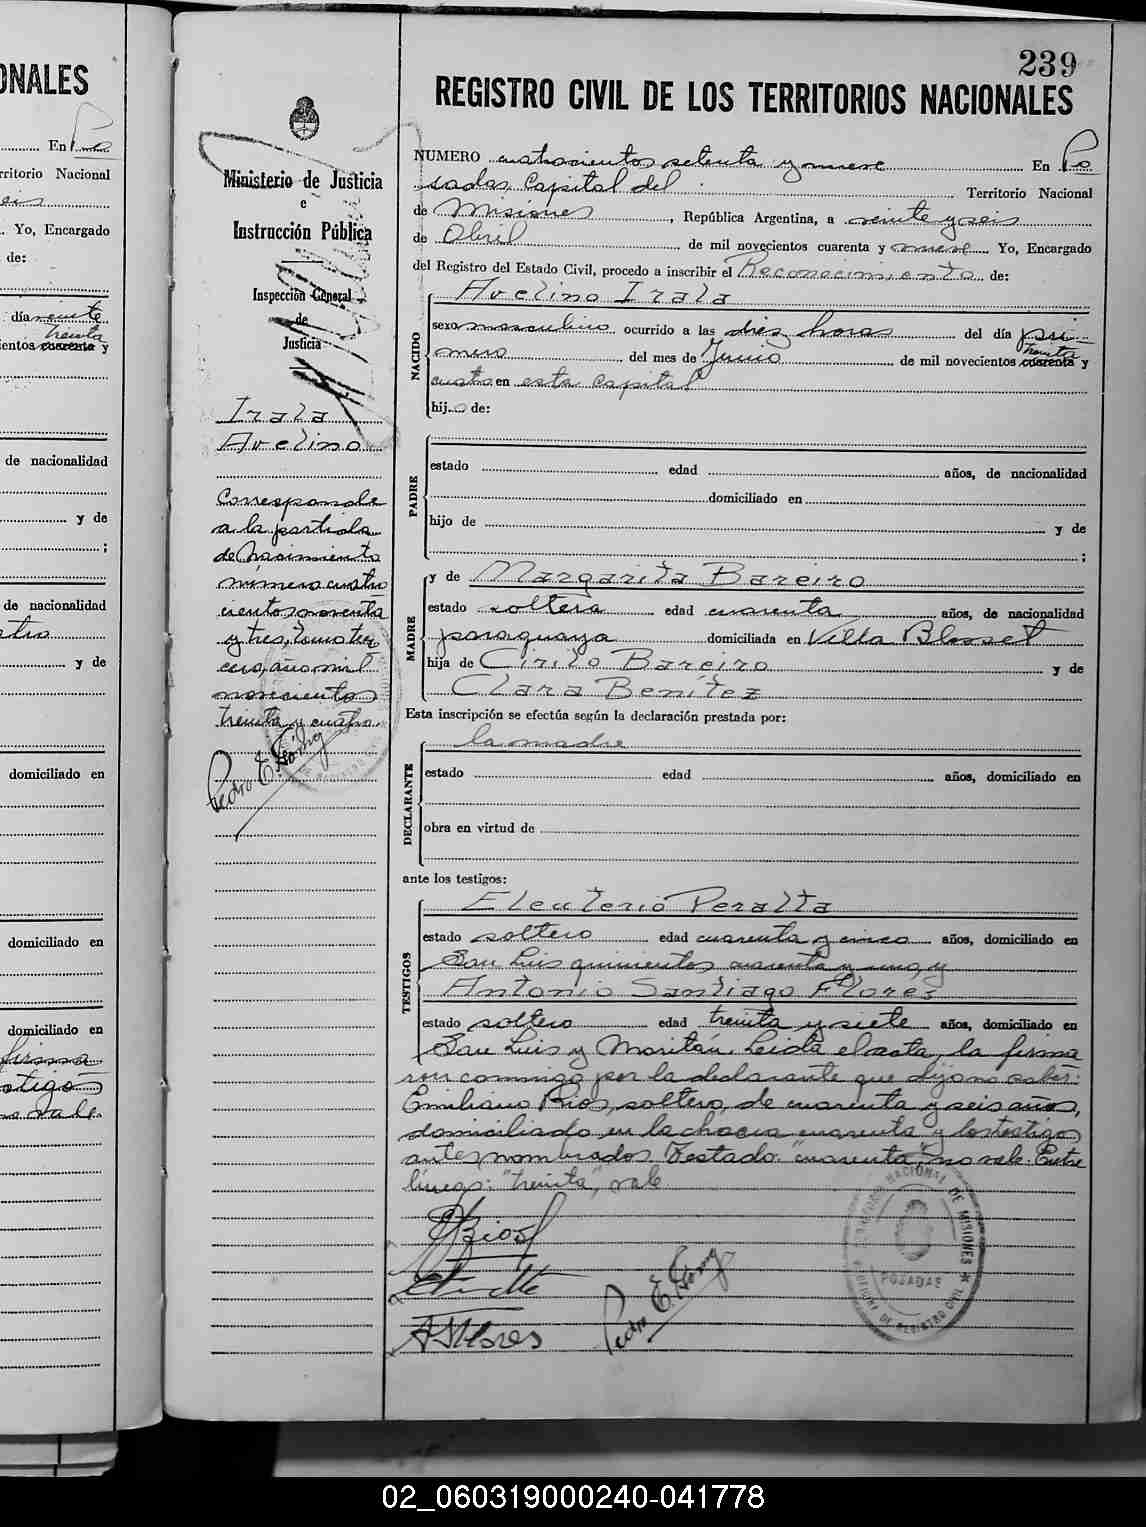 ONALES
En Po
rritorio Nacional
eis
Yo, Encargado
de:
día veinte
treinta
ientos cuarenta y
de nacionalidad
y de
;
de nacionalidad
y de
domiciliado en
domiciliado en
domiciliado en
firma
no vale.
239
REGISTRO CIVIL DE LOS TERRITORIOS NACIONALES
Ministerio de Justicia
e
Instrucción Pública
Inspección General
de
Justicia
Irala
Avelino
Corresponde
a la partida
de Nacimiento
número cuatro
cientos noventa
y tres, tomo ter
cero, año mil
novecientos
treinta y cuatro.
NUMERO cuatrocientos setenta y nueve En Po
sadas, Capital del Territorio Nacional
de Misiones, República Argentina, a veinte y seis
de Abril de mil novecientos cuarenta y nueve Yo, Encargado
del Registro del Estado Civil, procedo a inscribir el Reconocimiento de:
NACIDO
Avelino Irala
sexo masculino ocurrido a las diez horas del día pri
treinta
mero del mes de Junio de mil novecientos cuarenta y
cuatro en esta Capital
hijo de:
PADRE
estado edad años, de nacionalidad
domiciliado en
hijo de y de
;
MADRE
y de Margarita Bareiro
estado soltera edad cuarenta años, de nacionalidad
paraguaya domiciliada en Villa Blosset
hija de Cirilo Bareiro y de
Clara Benítez
Esta inscripción se efectúa según la declaración prestada por:
DECLARANTE
la madre
estado edad años, domiciliado en
obra en virtud de
ante los testigos:
TESTIGOS
Eleuterio Peralta
estado soltero edad cuarenta y cinco años, domiciliado en
San Luis quinientos cuarenta y uno, y
Antonio Santiago Flores
estado soltero edad treinta y siete años, domiciliado en
San Luis y Moritán. Leída el acta, la firma
ron conmigo por la declarante que dijo no saber:
Emiliano Rios, soltero, de cuarenta y seis años,
domiciliado en la chacra cuarenta y los testigos
antes nombrados. Testado: "cuarenta", no vale. Entre
líneas: "treinta", vale
ERios
ASFlores
Pedro E.
NACIONAL DE MISIONES
POSADAS
DE REGISTRO CIVIL
02_060319000240-041778